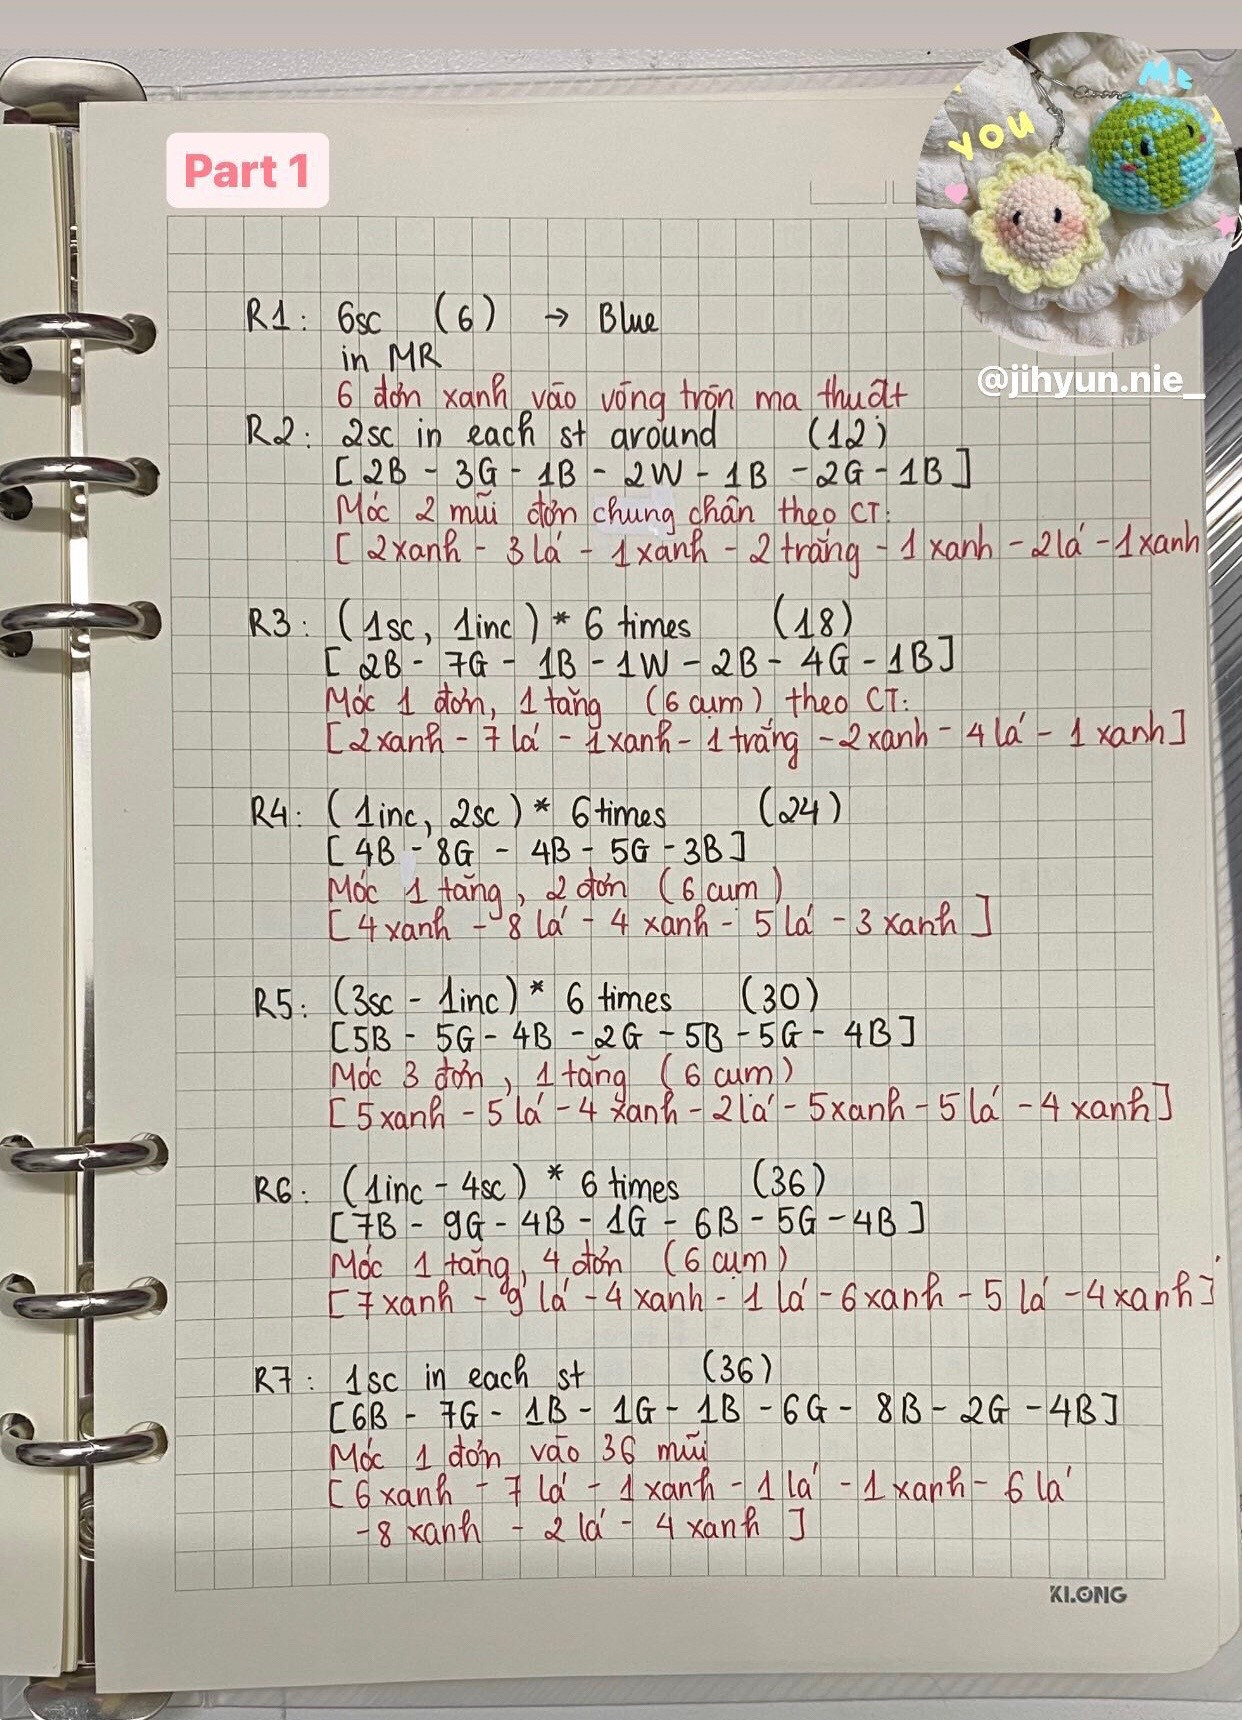 Me
you
Part 1
@jihyun.nie_
R1: 6sc (6) → Blue
in MR
6 đơn xanh vào vòng tròn ma thuật
R2: 2sc in each st around (12)
[2B - 3G - 1B - 2W - 1B - 2G - 1B]
Móc 2 mũi đơn chung chân theo CT:
[2xanh - 3 lá - 1xanh - 2 trắng - 1 xanh - 2lá - 1xanh
R3: (1sc, 1inc) * 6 times (18)
[2B - 7G - 1B - 1W - 2B - 4G - 1B]
Móc 1 đơn, 1 tăng (6 cụm) theo CT:
[2xanh - 7 lá - 1xanh - 1 trắng - 2xanh - 4 lá - 1 xanh]
R4: (1inc, 2sc) * 6 times (24)
[4B - 8G - 4B - 5G - 3B]
Móc 1 tăng, 2 đơn (6 cụm)
[4xanh - 8 lá - 4 xanh - 5 lá - 3 xanh]
R5: (3sc - 1inc) * 6 times (30)
[5B - 5G - 4B - 2G - 5B - 5G - 4B]
Móc 3 đơn, 1 tăng (6 cụm)
[5xanh - 5 lá - 4 xanh - 2lá - 5xanh - 5 lá - 4 xanh]
R6: (1inc - 4sc) * 6 times (36)
[7B - 9G - 4B - 1G - 6B - 5G - 4B]
Móc 1 tăng, 4 đơn (6 cụm)
[7xanh - 9 lá - 4xanh - 1 lá - 6xanh - 5 lá - 4xanh]
R7: 1sc in each st (36)
[6B - 7G - 1B - 1G - 1B - 6G - 8B - 2G - 4B]
Móc 1 đơn vào 36 mũi
[6xanh - 7 lá - 1xanh - 1 lá - 1xanh - 6 lá
- 8 xanh - 2 lá - 4 xanh]
KLONG